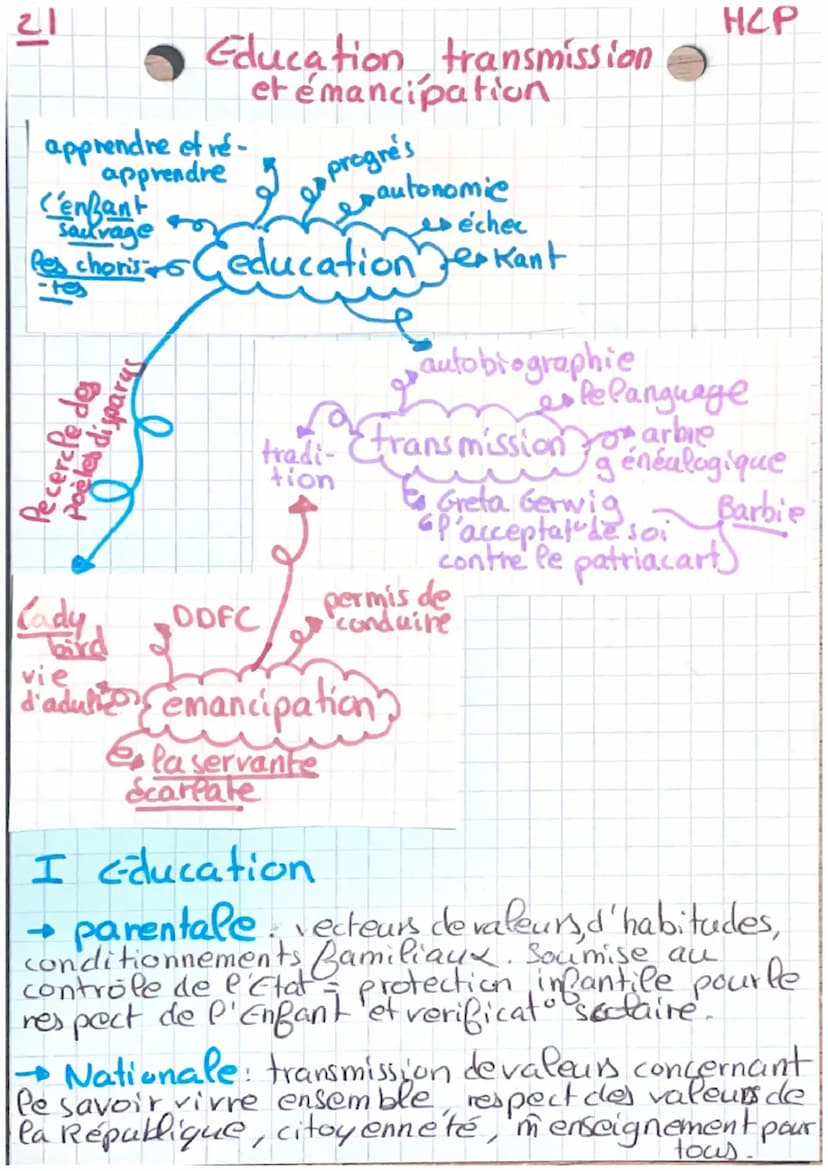 21
HLP
Education transmission
et émancipation
apprendre et ré-
apprendre
progrés
autonomie
échec
Kant
L'enfant
sauvage
les choris-
-tes
education
le cercle des
poètes disparus
autobiographie
le language
arbre
généalogique
transmission
tradi-
tion
Greta Gerwig
l'acceptat° de soi
contre le patriacart
Barbie
Lady
bird
DDFC
permis de
conduire
vie
d'adulte
emancipation
la servante
écarlate
I Education
→ parentale : vecteurs de valeurs, d'habitudes,
conditionnements familiaux. Soumise au
contrôle de l'Etat = protection infantile pour le
respect de l'Enfant et verificat° scolaire.
→ Nationale : transmission de valeurs concernant
le savoir vivre ensemble, respect des valeurs de
la République, citoyenneté, m̂ enseignement pour
tous.